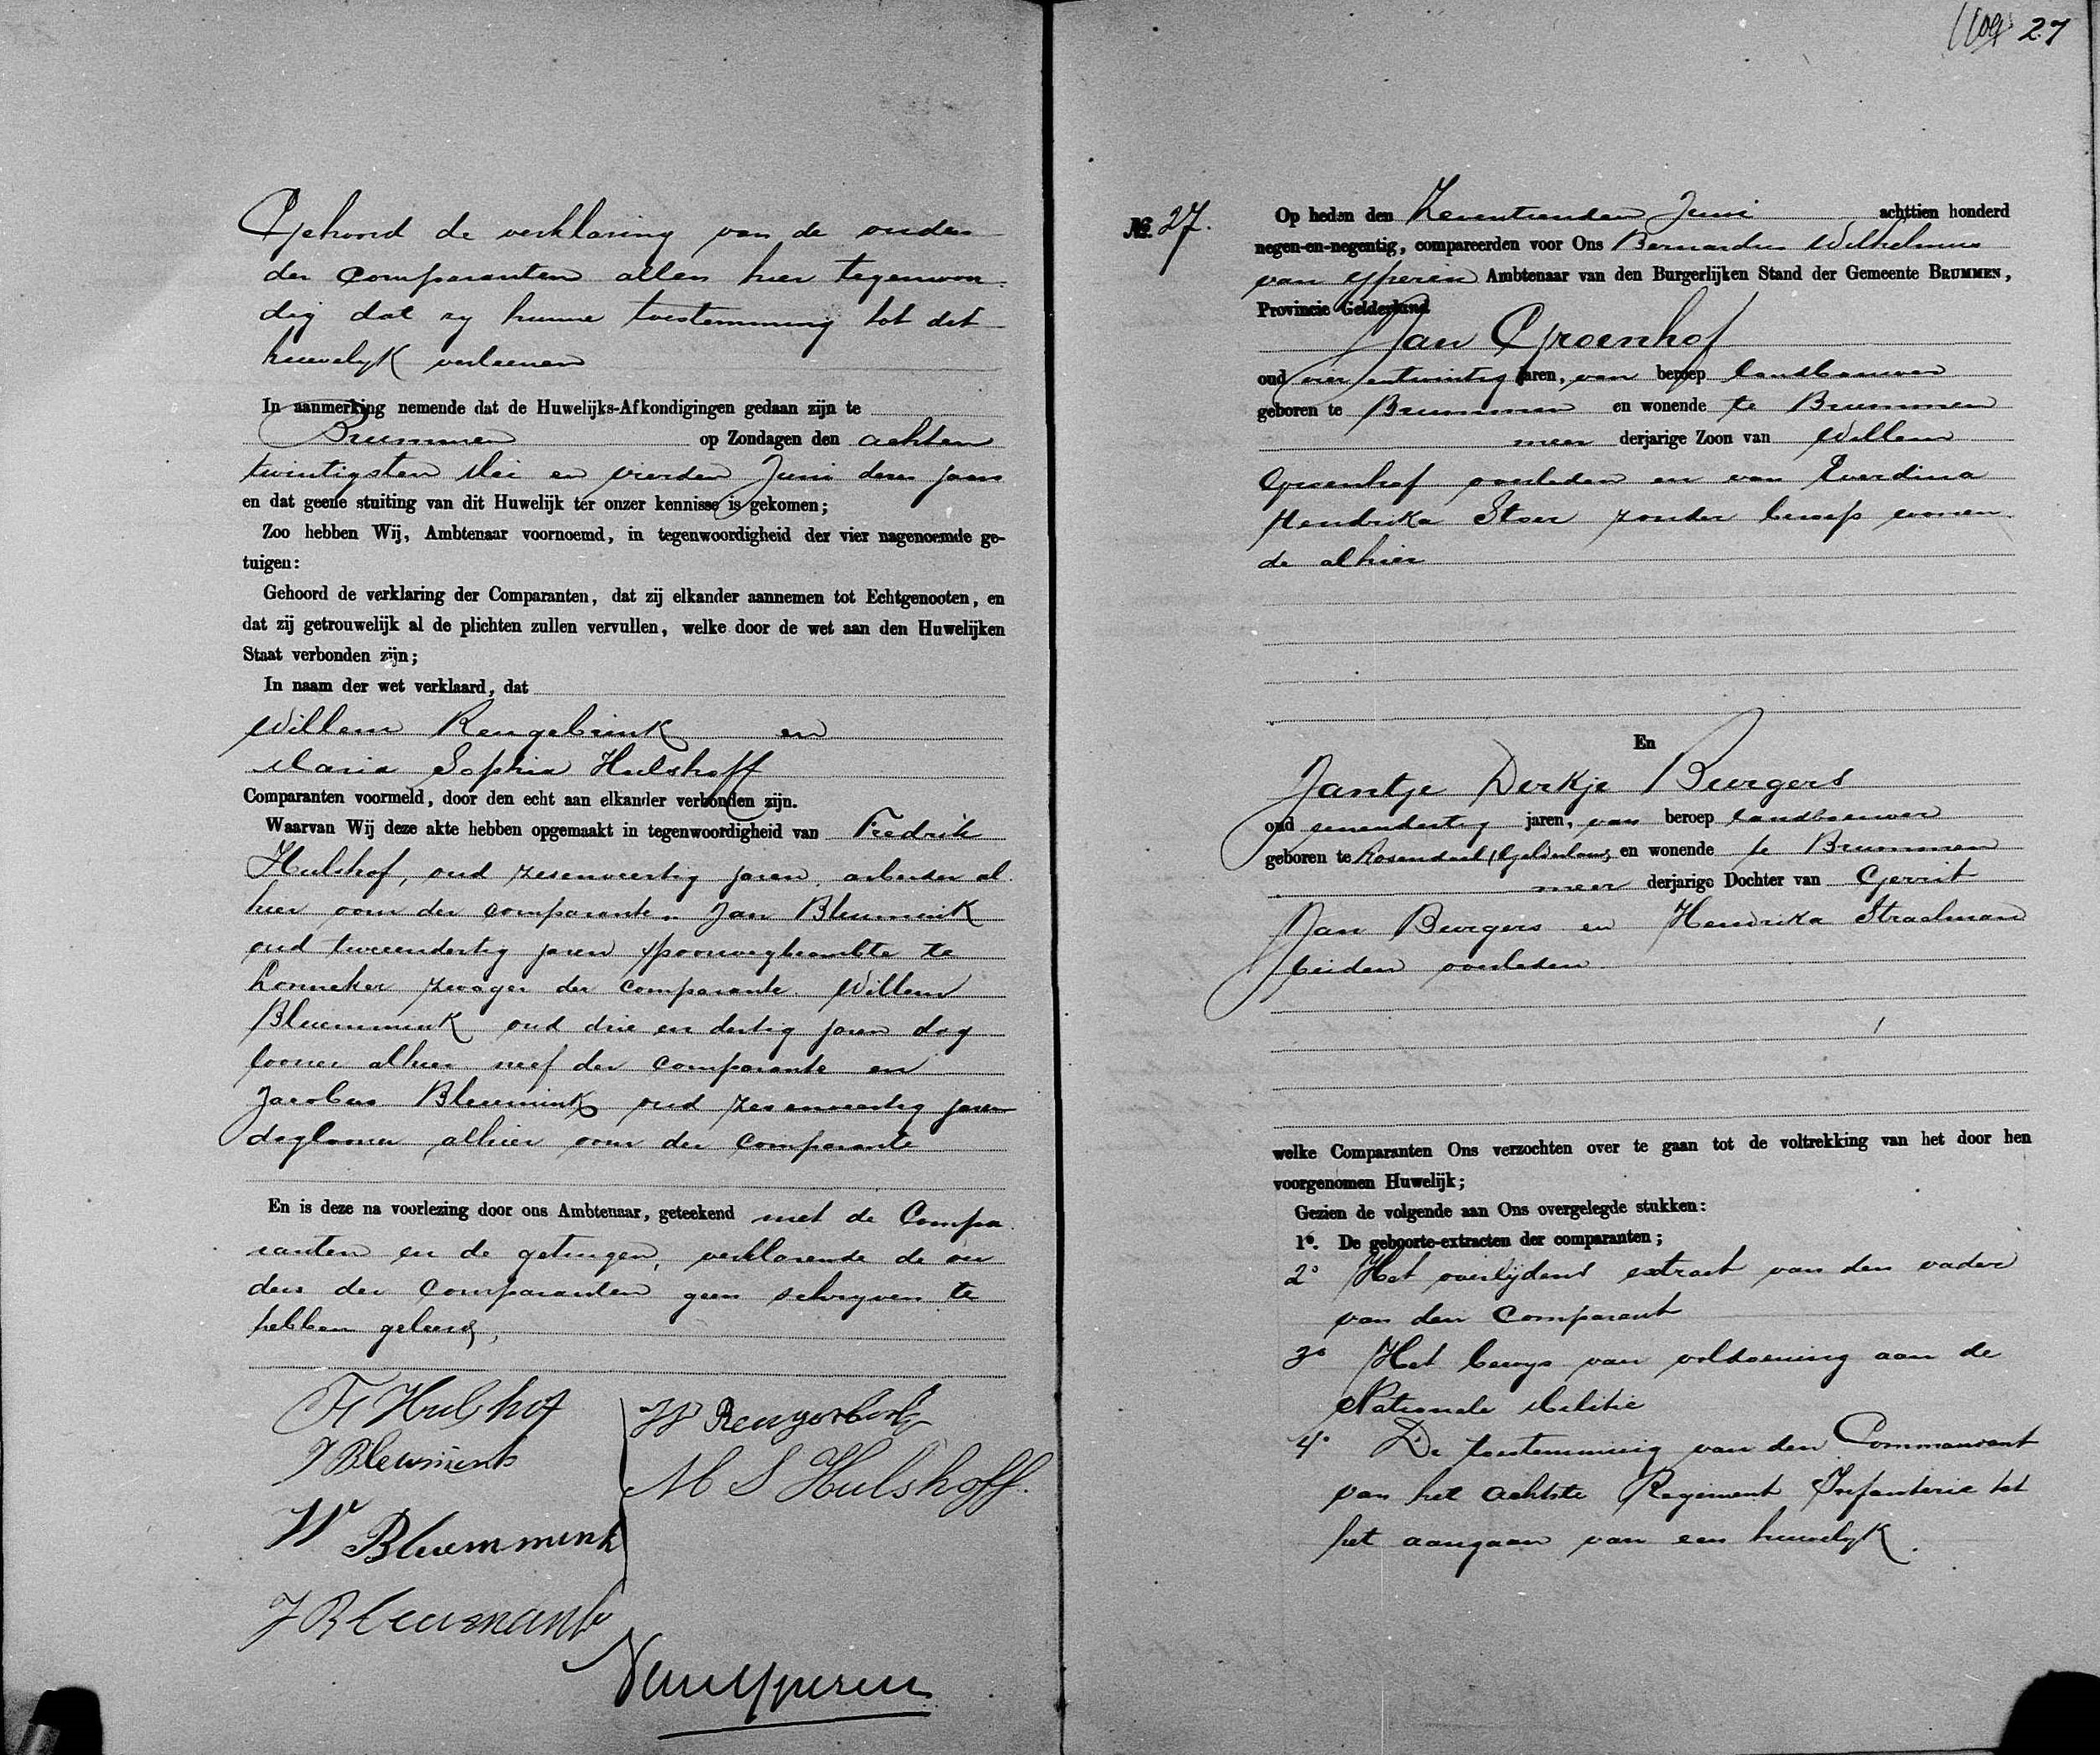 Gehoord de verklaring van de ouders
der comparanten allen hier tegenwoor
dig dat zy hunne toestemming tot dit
huwelyk verleenen
In aanmerking nemende dat de Huwelijks-Afkondigingen gedaan zijn te
Brummen op Zondagen den achten
twintigsten Mei en vierden Juni dezes jaars
en dat geene stuiting van dit Huwelijk ter onzer kennisse is gekomen;
Zoo hebben Wij, Ambtenaar voornoemd, in tegenwoordigheid der vier nagenoemde ge-
tuigen:
Gehoord de verklaring der Comparanten, dat zij elkander aannemen tot Echtgenooten, en
dat zij getrouwelijk al de plichten zullen vervullen, welke door de wet aan den Huwelijken
Staat verbonden zijn;
In naam der wet verklaard, dat
Willem Rengebrink en
Maria Sophia Hulshoff
Comparanten voormeld, door den echt aan elkander verbonden zijn.
Waarvan Wij deze akte hebben opgemaakt in tegenwoordigheid van Fredrik
Hulshof, oud zesenveertig jaren, arbeider al
hier oom der comparante. Jan Bleumink
oud tweeendertig jaren spoorwegbeambte te
Lonneker zwager der comparante. Willem
Bleummink oud drie en dertig jaren dag
looner alhier neef der comparante en
Jacobus Bleumink oud zes enveertig jaren
daglooner alhier oom der comparante
En is deze na voorlezing door ons Ambtenaar, geteekend met de Compa
ranten en de getuigen, verklarende de ou
ders der comparanten geen schryven te
hebben geleerd,
Fr Hulshof
J Bleumink
W Bleummink
J Bleumink
W Rengerbink
M S Hulshoff.
Van Yperen
27
No. 27.
Op heden den Zeventienden Juni achttien honderd
negen-en-negentig, compareerden voor Ons Bernardus Wilhelmus
van Yperen Ambtenaar van den Burgerlijken Stand der Gemeente BRUMMEN,
Provincie Gelderland
Jan Groenhof
oud vier entwintig jaren, van beroep landbouwer
geboren te Brummen en wonende te Brummen
meer derjarige Zoon van Willem
Groenhof overleden en van Everdina
Hendrika Stoer zonder beroep wonen
de alhier
En
Jantje Derkje Burgers
oud eenendertig jaren, van beroep landbouwer
geboren te Rosendaal (Gelderland) en wonende te Brummen
meer derjarige Dochter van Gerrit
Jan Burgers en Hendrika Straalman
beiden overleden
welke Comparanten Ons verzochten over te gaan tot de voltrekking van het door hen
voorgenomen Huwelijk;
Gezien de volgende aan Ons overgelegde stukken:
1o. De geboorte-extracten der comparanten;
2o Het overlijdens extract van den vader
van den Comparant
3o Het bewys van voldoening aan de
Nationale Militie
4o De toestemming van den Commandant
van het achtste Regiment Infanterie tot
het aangaan van een huwelyk.